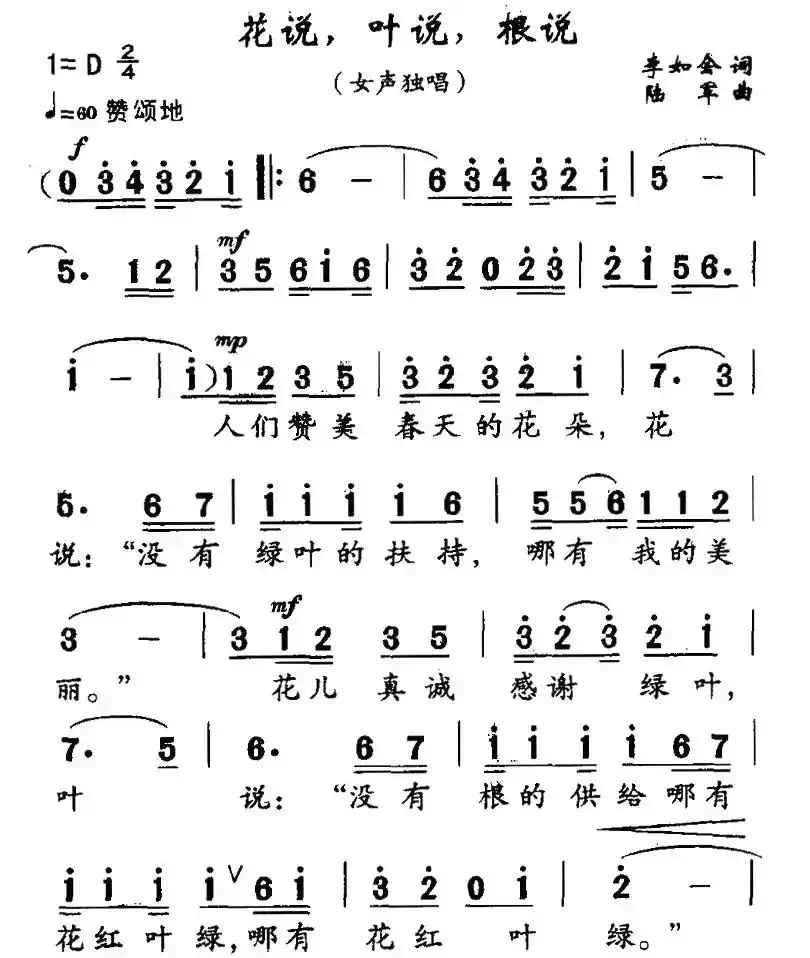 花说，叶说，根说
1=D 2/4
（女声独唱）
李如会 词
陆 军 曲
♩=60 赞颂地
f
(0 3̇4̇ 3̇2̇ 1̇ ‖: 6 － | 6 3̇4̇ 3̇2̇ 1̇ | 5 －
mf
5. 12 | 35 61̇6 | 3̇2̇ 02̇3̇ | 2̇1̇ 56. |
mp
1̇ － | 1̇) 12 35 | 3̇2̇3̇ 2̇1̇ | 7. 3̇ |
人们赞美 春天的花 朵，花
5. 67 | 1̇1̇1̇ 1̇6 | 556 112 |
说：“没有 绿叶的扶 持，哪有 我的美
mf
3 － | 312 35 | 3̇2̇3̇ 2̇1̇ |
丽。” 花儿 真诚 感谢 绿叶，
7. 5 | 6. 67 | 1̇1̇1̇ 1̇67 |
叶 说：“没有 根的供给哪有
1̇1̇1̇ 1̇ ∨ 61̇ | 3̇2̇ 01̇ | 2̇ － |
花红叶绿，哪有 花红 叶 绿。”